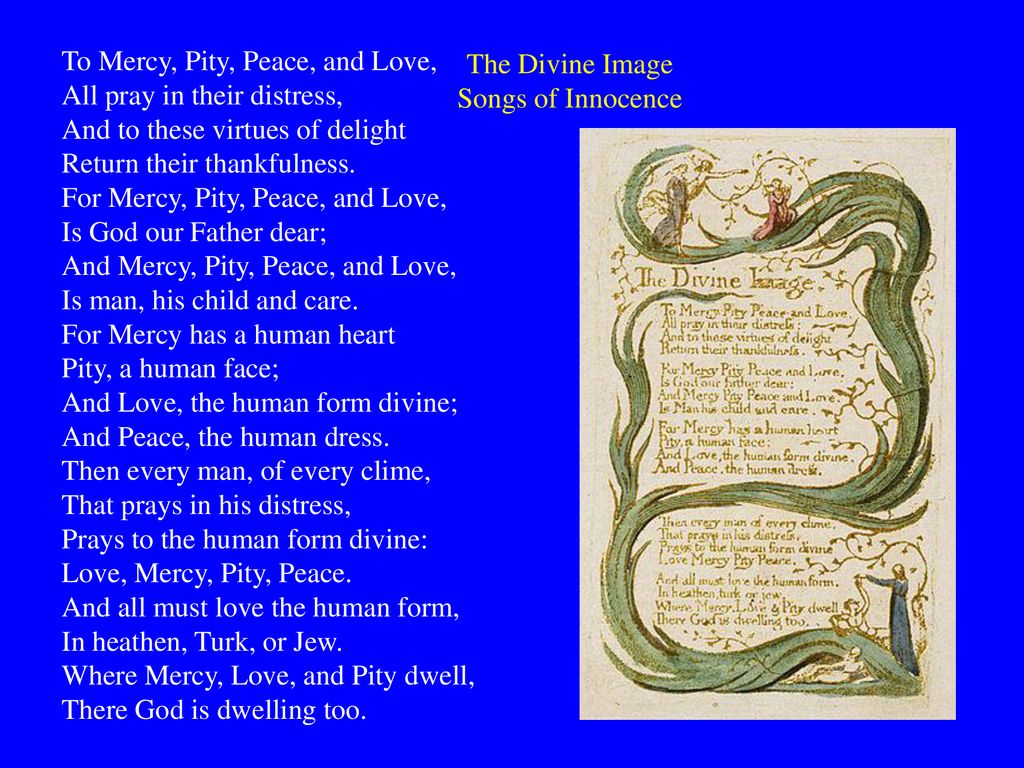 To Mercy, Pity, Peace, and Love,
All pray in their distress,
And to these virtues of delight
Return their thankfulness.
For Mercy, Pity, Peace, and Love,
Is God our Father dear;
And Mercy, Pity, Peace, and Love,
Is man, his child and care.
For Mercy has a human heart
Pity, a human face;
And Love, the human form divine;
And Peace, the human dress.
Then every man, of every clime,
That prays in his distress,
Prays to the human form divine:
Love, Mercy, Pity, Peace.
And all must love the human form,
In heathen, Turk, or Jew.
Where Mercy, Love, and Pity dwell,
There God is dwelling too.
The Divine Image
Songs of Innocence
The Divine Image.
To Mercy Pity Peace and Love,
All pray in their distress:
And to these virtues of delight
Return their thankfulness.
For Mercy Pity Peace and Love,
Is God our father dear:
And Mercy Pity Peace and Love,
Is Man his child and care.
For Mercy has a human heart
Pity, a human face:
And Love, the human form divine,
And Peace, the human dress.
Then every man of every clime,
That prays in his distress,
Prays to the human form divine
Love Mercy Pity Peace.
And all must love the human form,
In heathen, turk or jew.
Where Mercy, Love & Pity dwell,
There God is dwelling too.